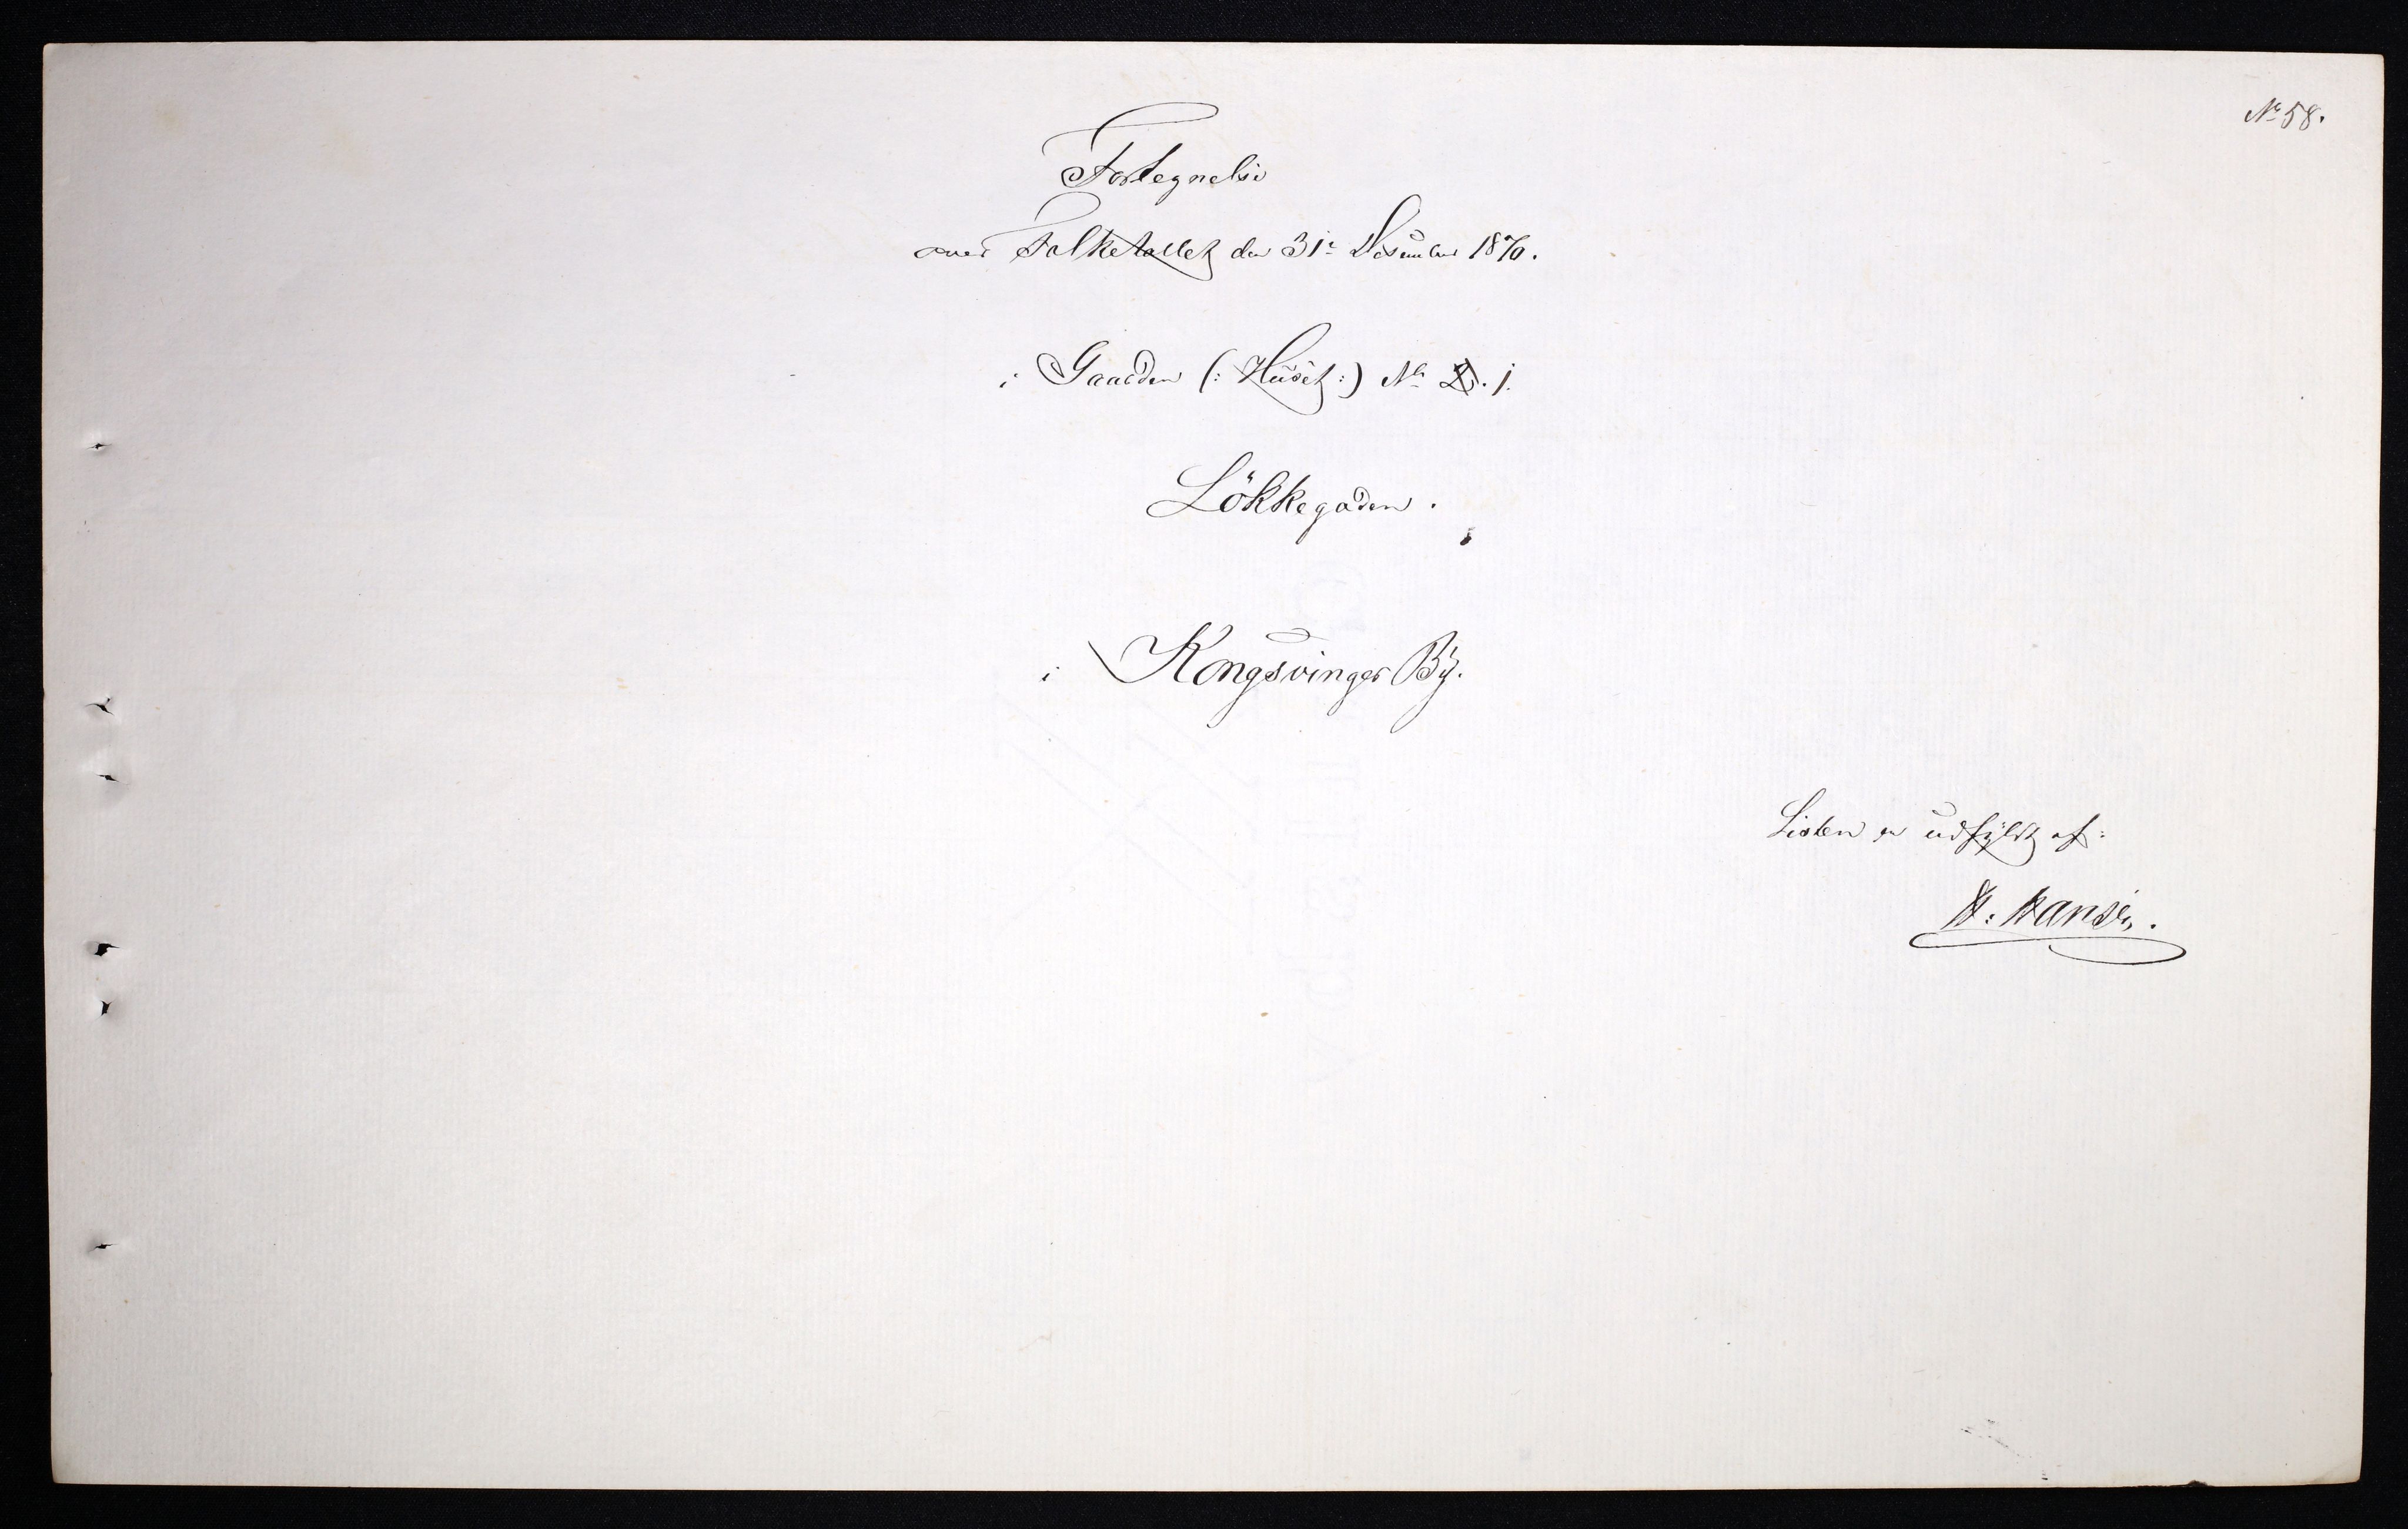 No 58.
Fortegnelse
over Folketallet den 31te December 1870.
i Gaarden (: Huset :) No 2. 1.
Lökkegaden.
i Kongsvinger By.
Listen er udfyldt af:
H. Hansen.